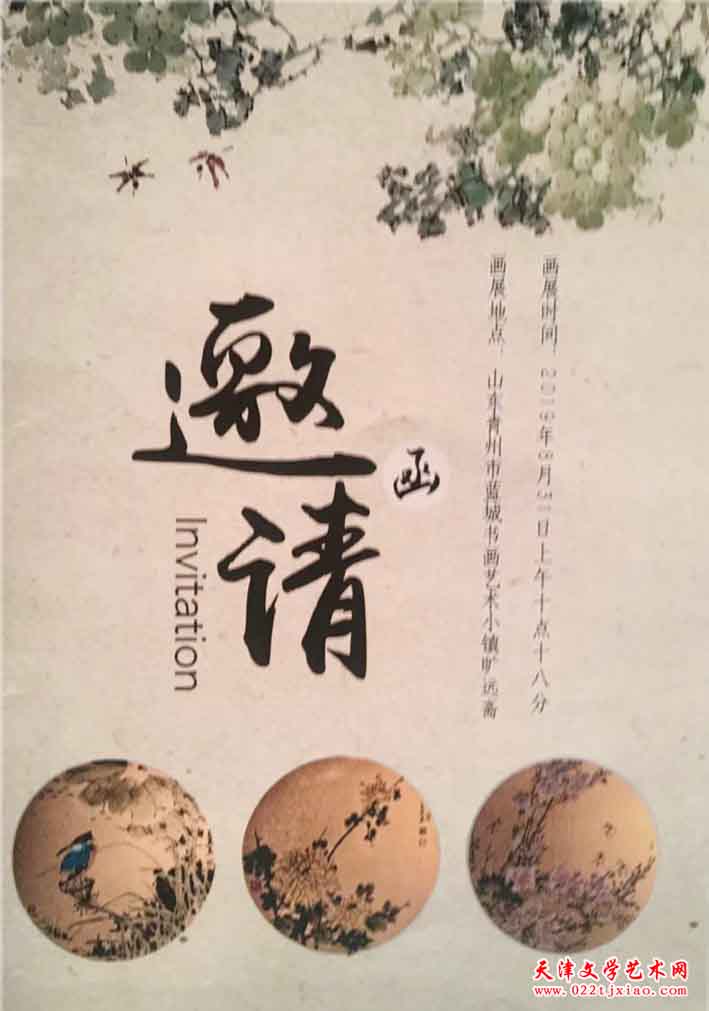 画展时间：2019年8月31日上午十点十八分
画展地点：山东青州市蓝城书画艺术小镇旷远斋
邀请
函
Invitation
天津文学艺术网
www.022tjxiao.com